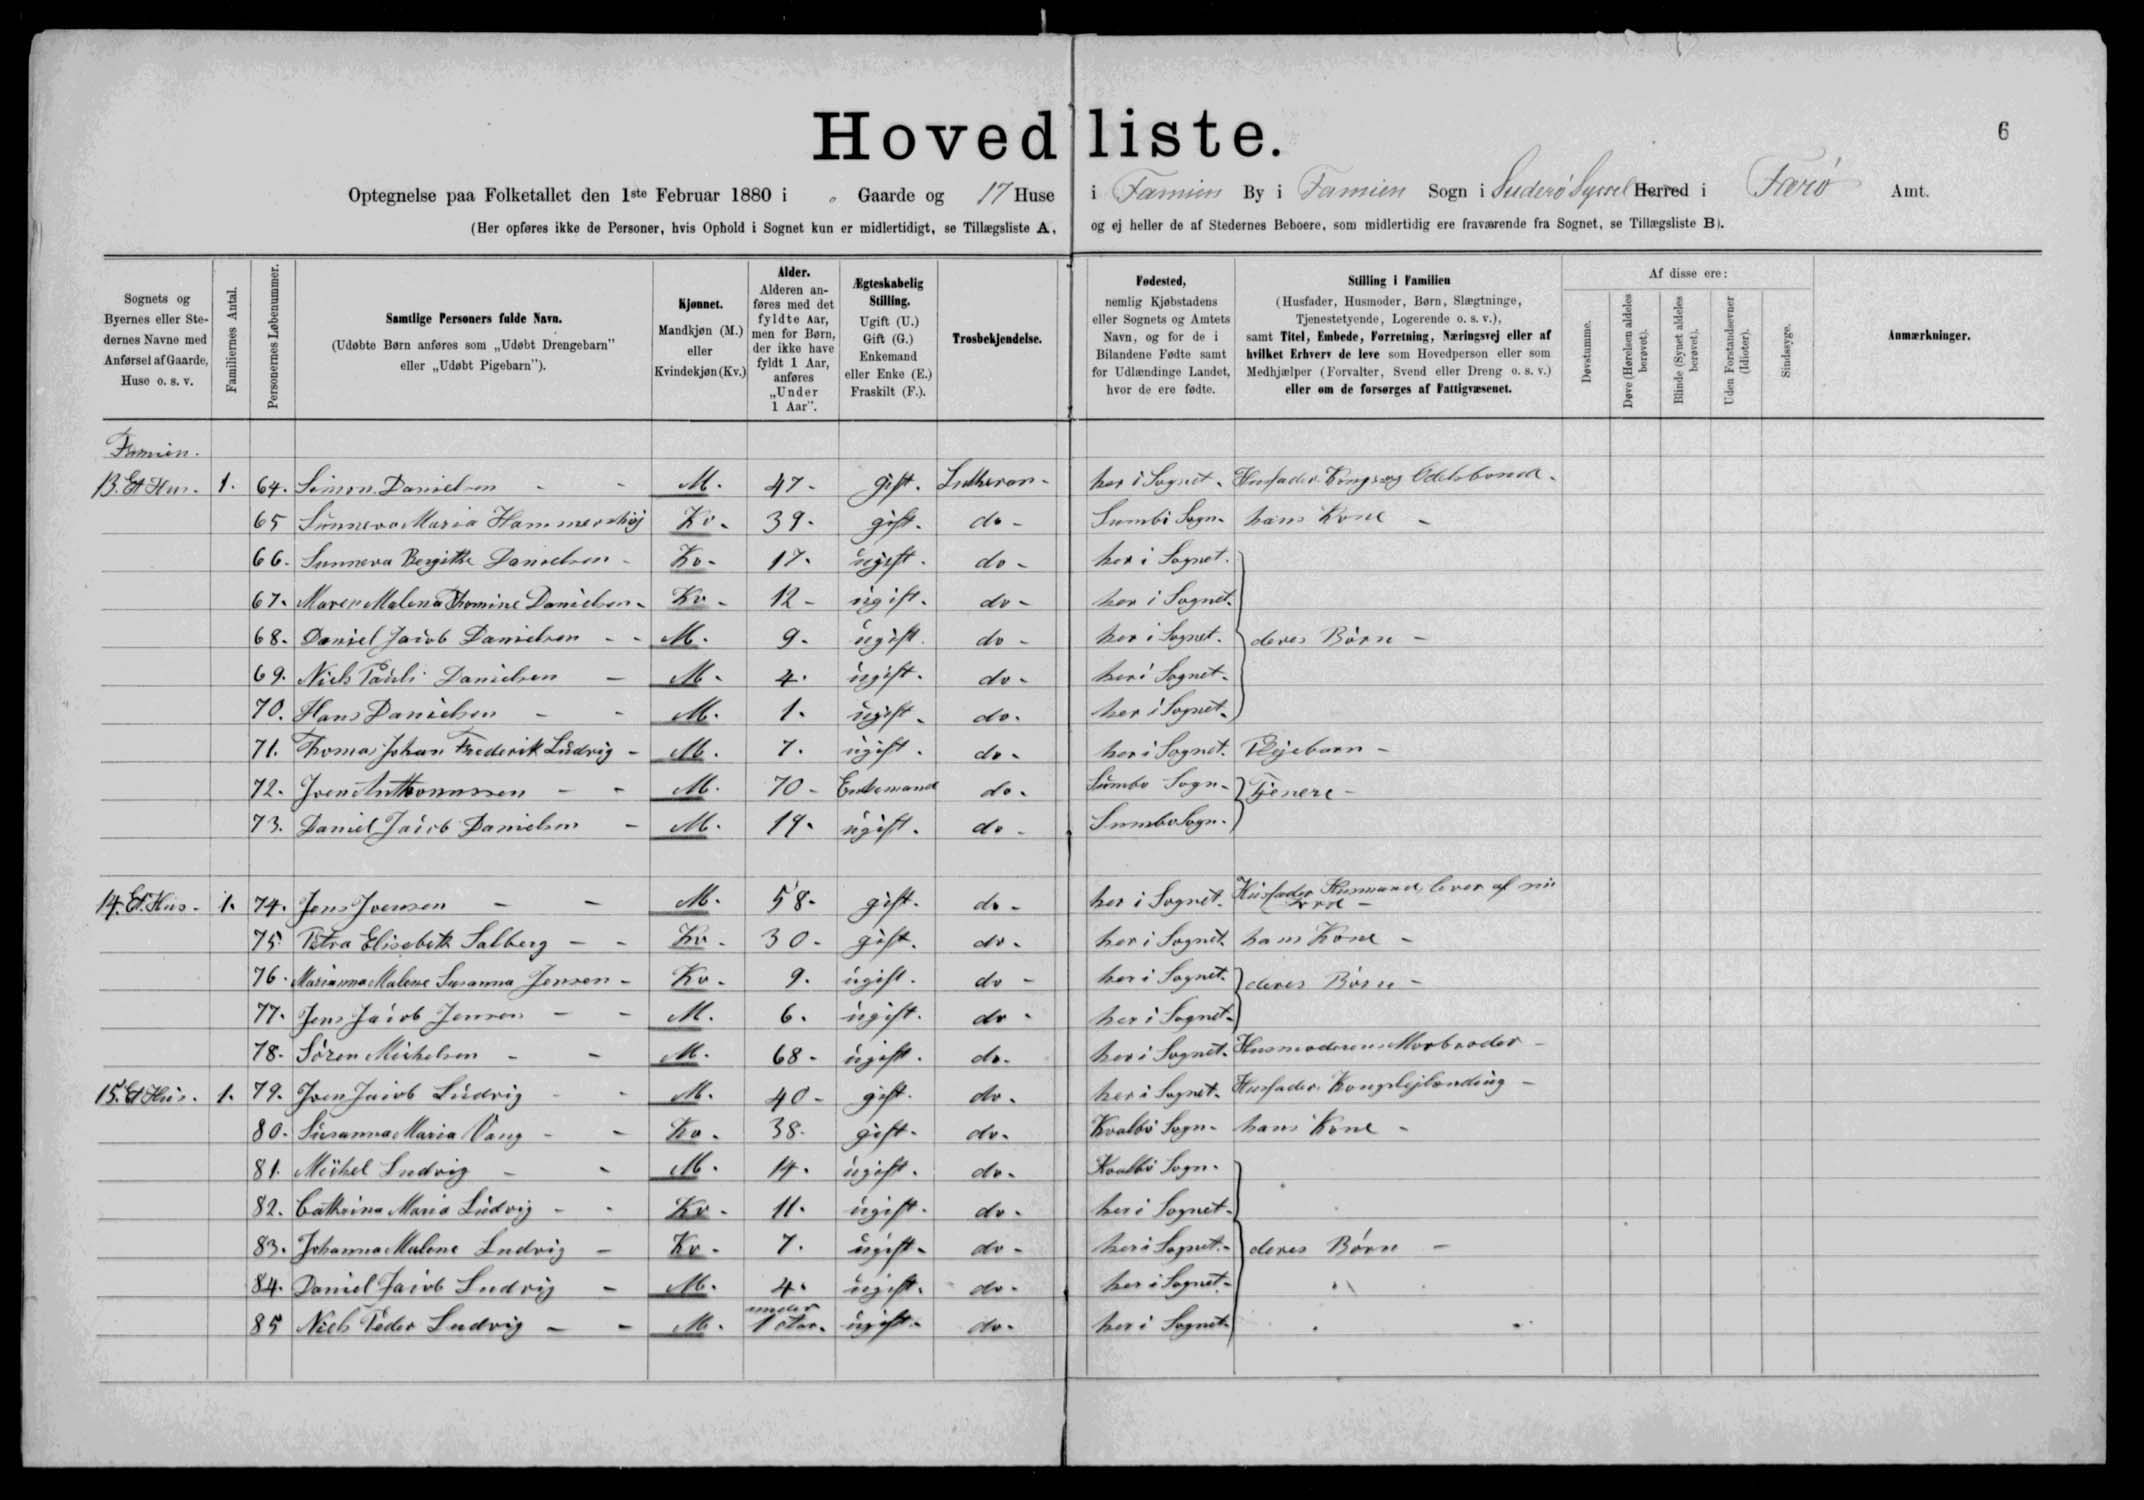 Hovedliste.
6
Optegnelse paa Folketallet den 1ste Februar 1880 i " Gaarde og 17 Huse i Famien By i Famien Sogn i Suderø Syssel Herred i Færø Amt.
(Her opføres ikke de Personer, hvis Ophold i Sognet kun er midlertidigt, se Tillægsliste A, og ej heller de af Stedernes Beboere, som midlertidig ere fraværende fra Sognet, se Tillægsliste B).
Sognets og Byernes eller Stedernes Navne med Anførsel af Gaarde, Huse o. s. v.
Familiernes Antal.
Personernes Løbenummer.
Samtlige Personers fulde Navn.
(Udøbte Børn anføres som „Udøbt Drengebarn" eller „Udøbt Pigebarn").
Kjønnet.
Mandkjøn (M.) eller Kvindekjøn (Kv.)
Alder.
Alderen anføres med det fyldte Aar, men for Børn, der ikke have fyldt 1 Aar, anføres „Under 1 Aar".
Ægteskabelig Stilling.
Ugift (U.) Gift (G.) Enkemand eller Enke (E.) Fraskilt (F.).
Trosbekjendelse.
Fødested,
nemlig Kjøbstadens eller Sognets og Amtets Navn, og for de i Bilandene Fødte samt for Udlændinge Landet, hvor de ere fødte.
Stilling i Familien
(Husfader, Husmoder, Børn, Slægtninge, Tjenestetyende, Logerende o. s. v.),
samt Titel, Embede, Forretning, Næringsvej eller af hvilket Erhverv de leve som Hovedperson eller som Medhjælper (Forvalter, Svend eller Dreng o. s. v.) eller om de forsørges af Fattigvæsenet.
Af disse ere:
Døvstumme.
Døve (Hørelsen aldeles berøvet).
Blinde (Synet aldeles berøvet).
Uden Forstandsevner (Idioter).
Sindssyge.
Anmærkninger.
Famien.
13. Et Hus. 1. 64. Simon Danielsen - - M. 47 - gift. Lutheran - her i Sognet. Husfader Kongs og Odelsbonde.
65 Sunneva Maria Hammershøj Kv. 39. gift. do - Sumbø Sogn. hans Kone -
66. Sunneva Bergithe Danielsen - Kv. 17. ugift. do - her i Sognet.
67. Maren Malena Thomine Danielsen. Kv. 12 - ugift. do - her i Sognet.
68. Daniel Jacob Danielsen - - M. 9. ugift. do - her i Sognet. deres Børn -
69. Niels Pauli Danielsen - M. 4. ugift. do. her i Sognet.
70. Hans Danielsen - - M. 1. ugift. do. her i Sognet.
71. Thomas Johan Frederik Ludvig - M. 7. ugift. do. her i Sognet. Plejebarn -
72. Joen Anthonussen - - M. 70 - Enkemand do. Sumbø Sogn. Tjenere -
73. Daniel Jacob Danielsen - M. 19. ugift. do - Sumbø Sogn.
14. Et Hus. 1. 74. Jens Joensen - - M. 58. gift. do - her i Sognet. Husfader Husmand, lever af sin Jord -
75 Petra Elisebeth Salberg - - Kv. 30 - gift. do. her i Sognet. hans Kone -
76. Marianna Malene Susanna Jensen - Kv. 9. ugift. do - her i Sognet. deres Børn -
77. Jens Jacob Jensen - - M. 6. ugift. do - her i Sognet.
78. Sören Michelsen - - M. 68 - ugift. do. her i Sognet. Husmoderens Morbroder -
15. Et Hus. 1. 79. Joen Jacob Ludvig - M. 40 - gift. do. her i Sognet. Husfader. Kongslejlænding -
80. Susanna Maria Vang - - Kv. 38. gift. do. Kvalbø Sogn - hans Kone -
81. Michel Ludvig - - M. 14. ugift. do. Kvalbø Sogn.
82. Cathrina Maria Ludvig - - Kv. 11. ugift. do. her i Sognet.
83. Johanna Malene Ludvig - Kv. 7. ugift. do - her i Sognet. deres Børn -
84. Daniel Jacob Ludvig - M. 4. ugift. do. her i Sognet.
85 Niels Peder Ludvig - - M. under 1 Aar. ugift. do. her i Sognet.